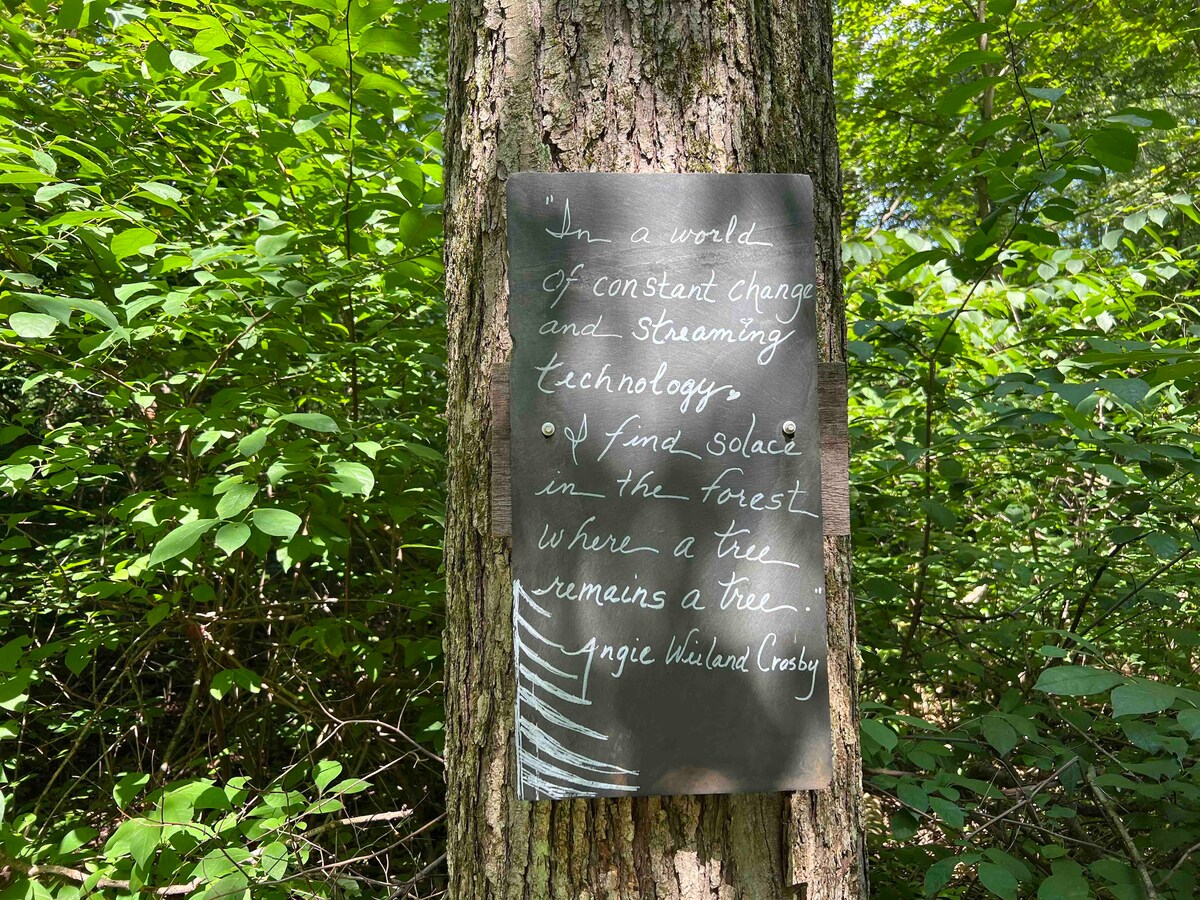 "In a world
of constant change
and streaming
technology,
I find solace
in the forest
where a tree
remains a tree."
Angie Weiland Crosby